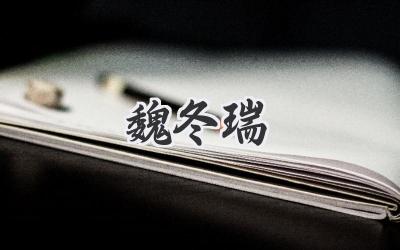 魏冬瑞